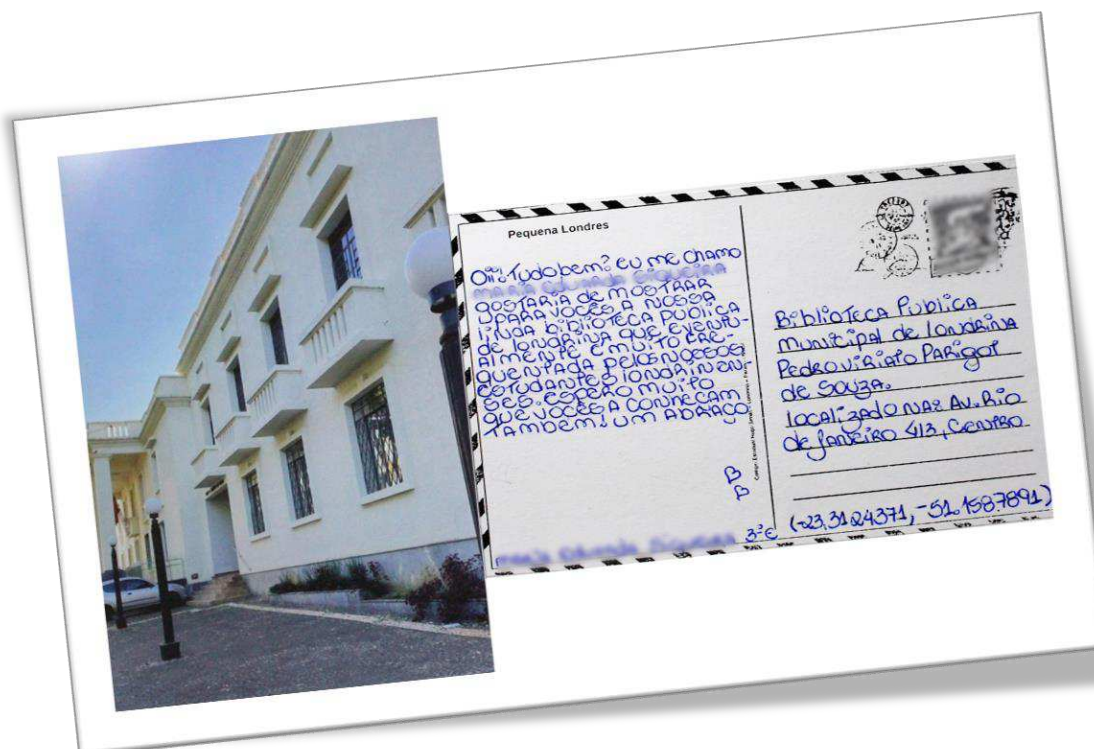 Pequena Londres
Oii! Tudo bem? eu me chamo
gostaria de mostrar
para vocês a nossa
linda biblioteca publica
de londrina que eventu-
almente é muito fre-
quentada pelos nossos
estudantes londrinen
ses. espero muito
que vocês a conheçam
também! um abraço
3ºE
Biblioteca Pública
municipal de londrina
Pedro Viriato Parigot
de Souza.
localizado na: Av. Rio
de Janeiro 413, Centro
(-23,3124371, -51.1587891)